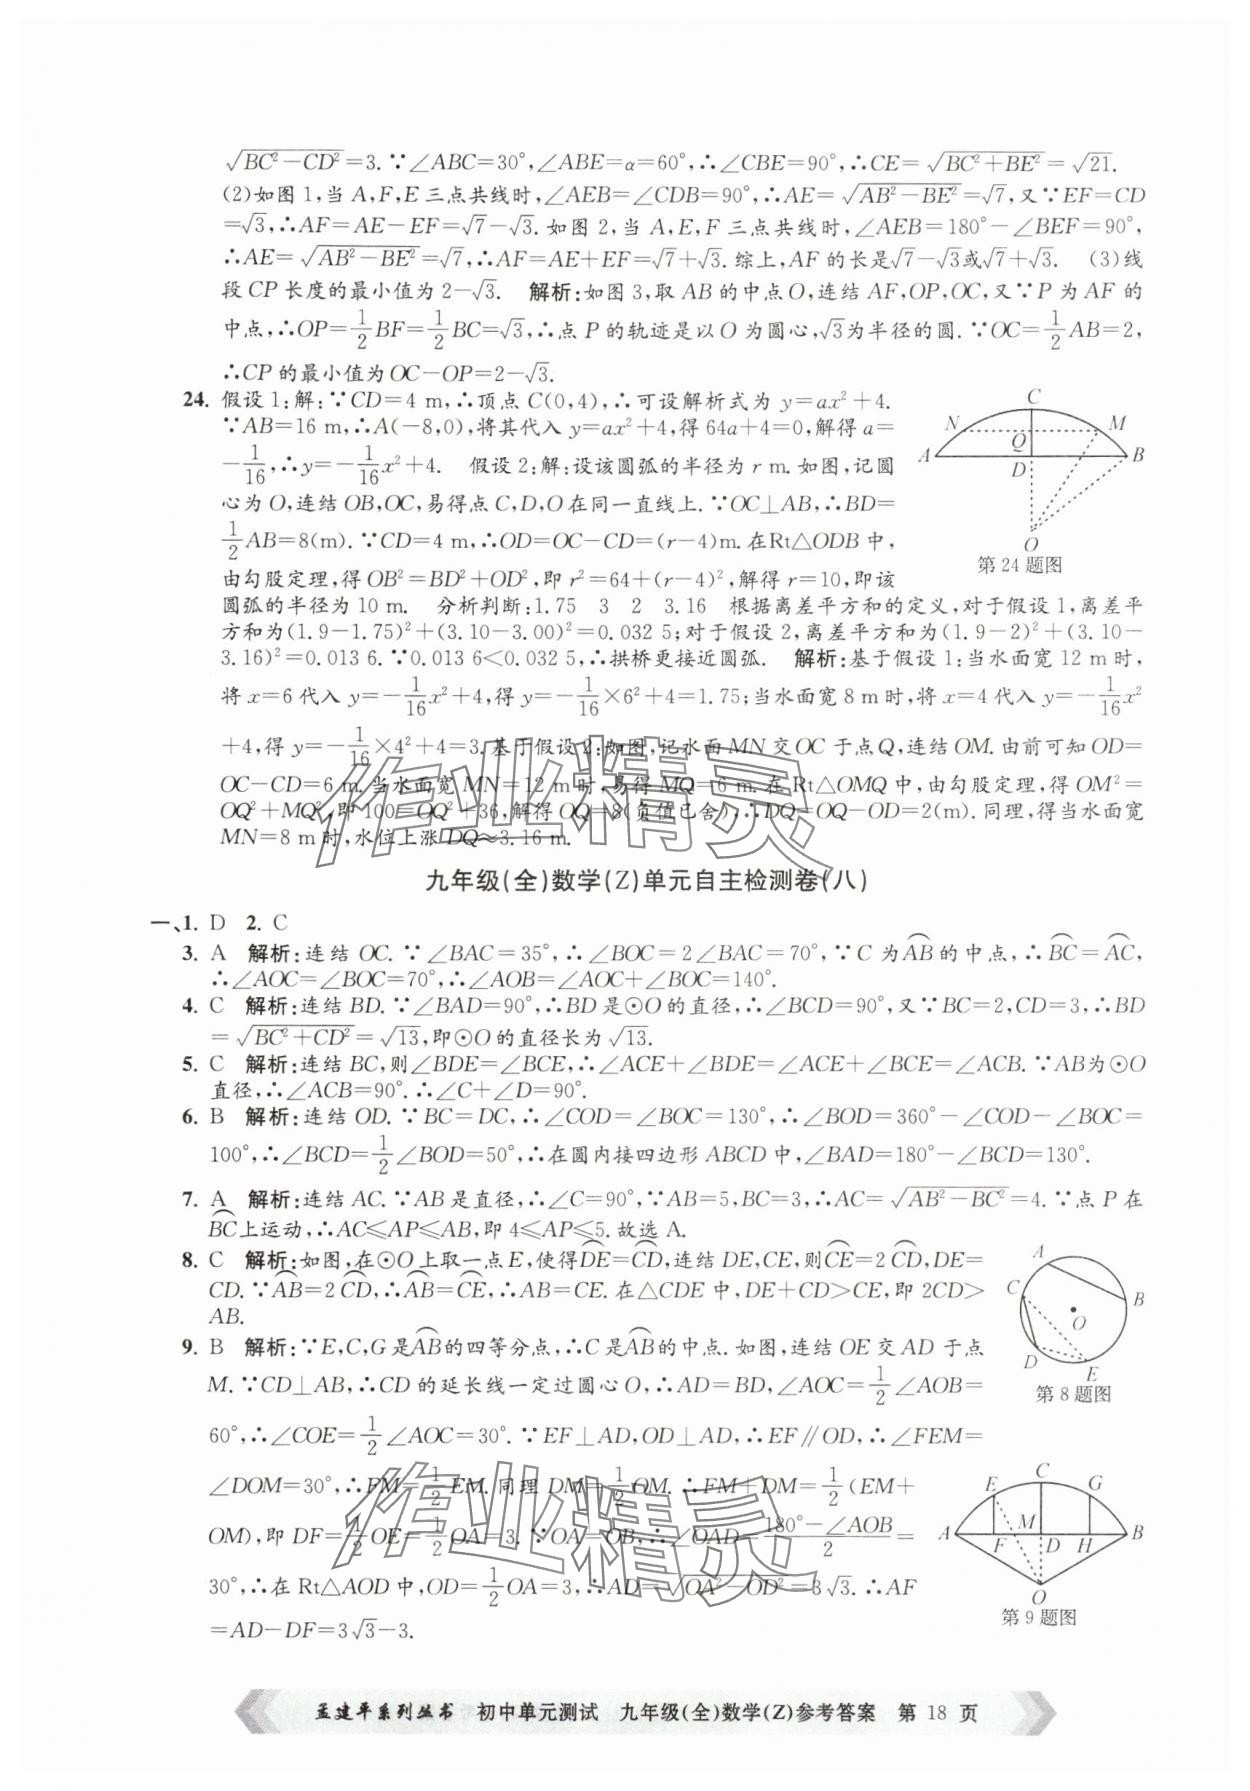 √(BC²－CD²)=3. ∵∠ABC=30°,∠ABE=α=60°,∴∠CBE=90°,∴CE=√(BC²+BE²)=√21.
(2)如图1,当A,F,E三点共线时,∠AEB=∠CDB=90°,∴AE=√(AB²－BE²)=√7,又∵EF=CD
=√3,∴AF=AE－EF=√7－√3.如图2,当A,E,F三点共线时,∠AEB=180°－∠BEF=90°,
∴AE=√(AB²－BE²)=√7,∴AF=AE+EF=√7+√3.综上,AF的长是√7－√3或√7+√3. (3)线
段CP长度的最小值为2－√3. 解析:如图3,取AB的中点O,连结AF,OP,OC,又∵P为AF的
中点,∴OP=1/2BF=1/2BC=√3,∴点P的轨迹是以O为圆心,√3为半径的圆.∵OC=1/2AB=2,
∴CP的最小值为OC－OP=2－√3.
24. 假设1:解:∵CD=4 m,∴顶点C(0,4),∴可设解析式为y=ax²+4.
∵AB=16 m,∴A(－8,0),将其代入y=ax²+4,得64a+4=0,解得a=
－1/16,∴y=－1/16x²+4. 假设2:解:设该圆弧的半径为r m.如图,记圆
心为O,连结OB,OC,易得点C,D,O在同一直线上.∵OC⊥AB,∴BD=
1/2AB=8(m).∵CD=4 m,∴OD=OC－CD=(r－4)m.在Rt△ODB中,
由勾股定理,得OB²=BD²+OD²,即r²=64+(r－4)²,解得r=10,即该
圆弧的半径为10 m. 分析判断:1.75 3 2 3.16 根据离差平方和的定义,对于假设1,离差平
方和为(1.9－1.75)²+(3.10－3.00)²=0.032 5;对于假设2,离差平方和为(1.9－2)²+(3.10－
3.16)²=0.013 6.∵0.013 6<0.032 5,∴拱桥更接近圆弧. 解析:基于假设1:当水面宽12 m时,
将x=6代入y=－1/16x²+4,得y=－1/16×6²+4=1.75;当水面宽8 m时,将x=4代入y=－1/16x²
+4,得y=－1/16×4²+4=3.基于假设2:如图,记水面MN交OC于点Q,连结OM.由前可知OD=
OC－CD=6 m.当水面宽MN=12 m时,易得MQ=6 m.在Rt△OMQ中,由勾股定理,得OM²=
OQ²+MQ²,即100=OQ²+36,解得OQ=8(负值已舍),∴DQ=OQ－OD=2(m).同理,得当水面宽
MN=8 m时,水位上涨DQ≈3.16 m.
C
N
M
Q
A
D
B
O
第24题图
九年级(全)数学(Z)单元自主检测卷(八)
一、1. D 2. C
3. A 解析:连结OC.∵∠BAC=35°,∴∠BOC=2∠BAC=70°,∵C为⌒AB的中点,∴⌒BC=⌒AC,
∴∠AOC=∠BOC=70°,∴∠AOB=∠AOC+∠BOC=140°.
4. C 解析:连结BD.∵∠BAD=90°,∴BD是⊙O的直径,∴∠BCD=90°,又∵BC=2,CD=3,∴BD
=√(BC²+CD²)=√13,即⊙O的直径长为√13.
5. C 解析:连结BC,则∠BDE=∠BCE,∴∠ACE+∠BDE=∠ACE+∠BCE=∠ACB.∵AB为⊙O
直径,∴∠ACB=90°.∴∠C+∠D=90°.
6. B 解析:连结OD.∵BC=DC,∴∠COD=∠BOC=130°,∴∠BOD=360°－∠COD－∠BOC=
100°,∴∠BCD=1/2∠BOD=50°,∴在圆内接四边形ABCD中,∠BAD=180°－∠BCD=130°.
7. A 解析:连结AC.∵AB是直径,∴∠C=90°,∵AB=5,BC=3,∴AC=√(AB²－BC²)=4.∵点P在
⌒BC上运动,∴AC≤AP≤AB,即4≤AP≤5.故选A.
8. C 解析:如图,在⊙O上取一点E,使得⌒DE=⌒CD,连结DE,CE,则⌒CE=2⌒CD,DE=
CD.∵⌒AB=2⌒CD,∴⌒AB=⌒CE,∴AB=CE.在△CDE中,DE+CD>CE,即2CD>
AB.
A
C
B
O
D
E
第8题图
9. B 解析:∵E,C,G是⌒AB的四等分点,∴C是⌒AB的中点.如图,连结OE交AD于点
M.∵CD⊥AB,∴CD的延长线一定过圆心O,∴AD=BD,∠AOC=1/2∠AOB=
60°,∴∠COE=1/2∠AOC=30°.∵EF⊥AD,OD⊥AD,∴EF∥OD,∴∠FEM=
∠DOM=30°,∴FM=1/2EM.同理DM=1/2OM.∴FM+DM=1/2(EM+
OM),即DF=1/2OE=1/2OA=3.∵OA=OB,∴∠OAD=(180°－∠AOB)/2=
30°,∴在Rt△AOD中,OD=1/2OA=3,∴AD=√(OA²－OD²)=3√3.∴AF
=AD－DF=3√3－3.
C
E
G
M
A
F
D
H
B
O
第9题图
作业精灵
作业精灵
孟建平系列丛书 初中单元测试 九年级(全)数学(Z)参考答案 第 18 页